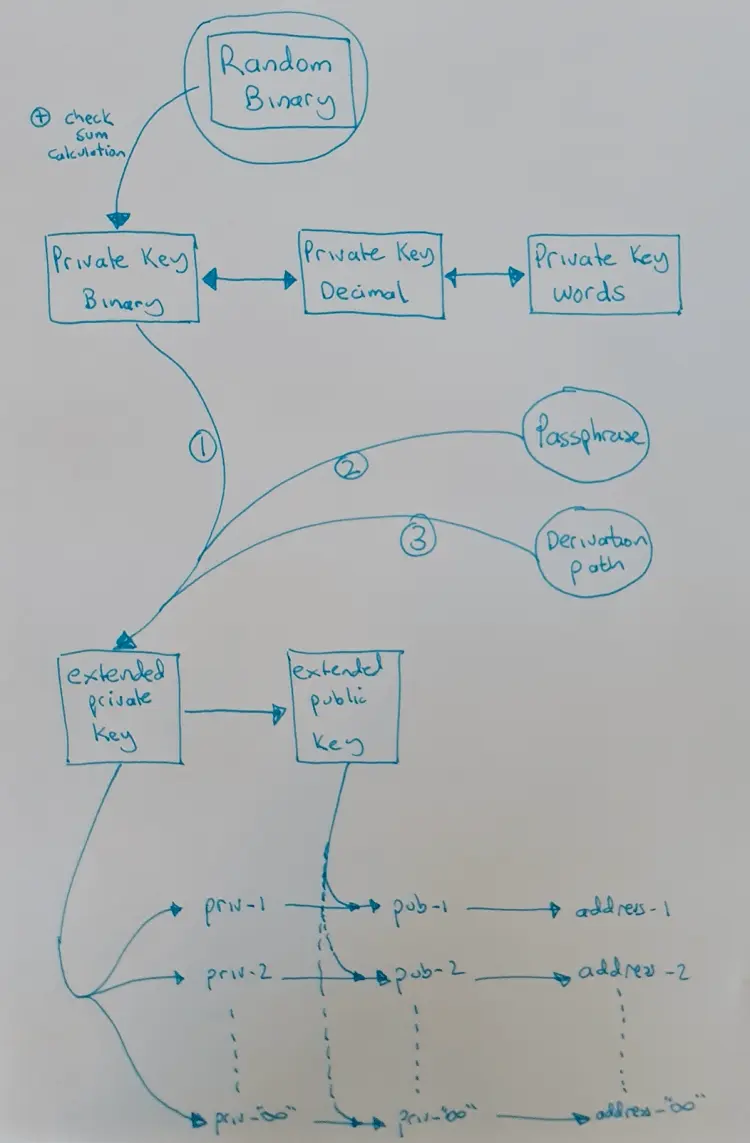 Random
Binary
+ check
sum
calculation
Private Key
Binary
Private Key
Decimal
Private Key
words
1
2
Passphrase
3
Derivation
path
extended
private
key
extended
public
key
priv-1
pub-1
address-1
priv-2
pub-2
address-2
priv-"∞"
priv-"∞"
address-"∞"